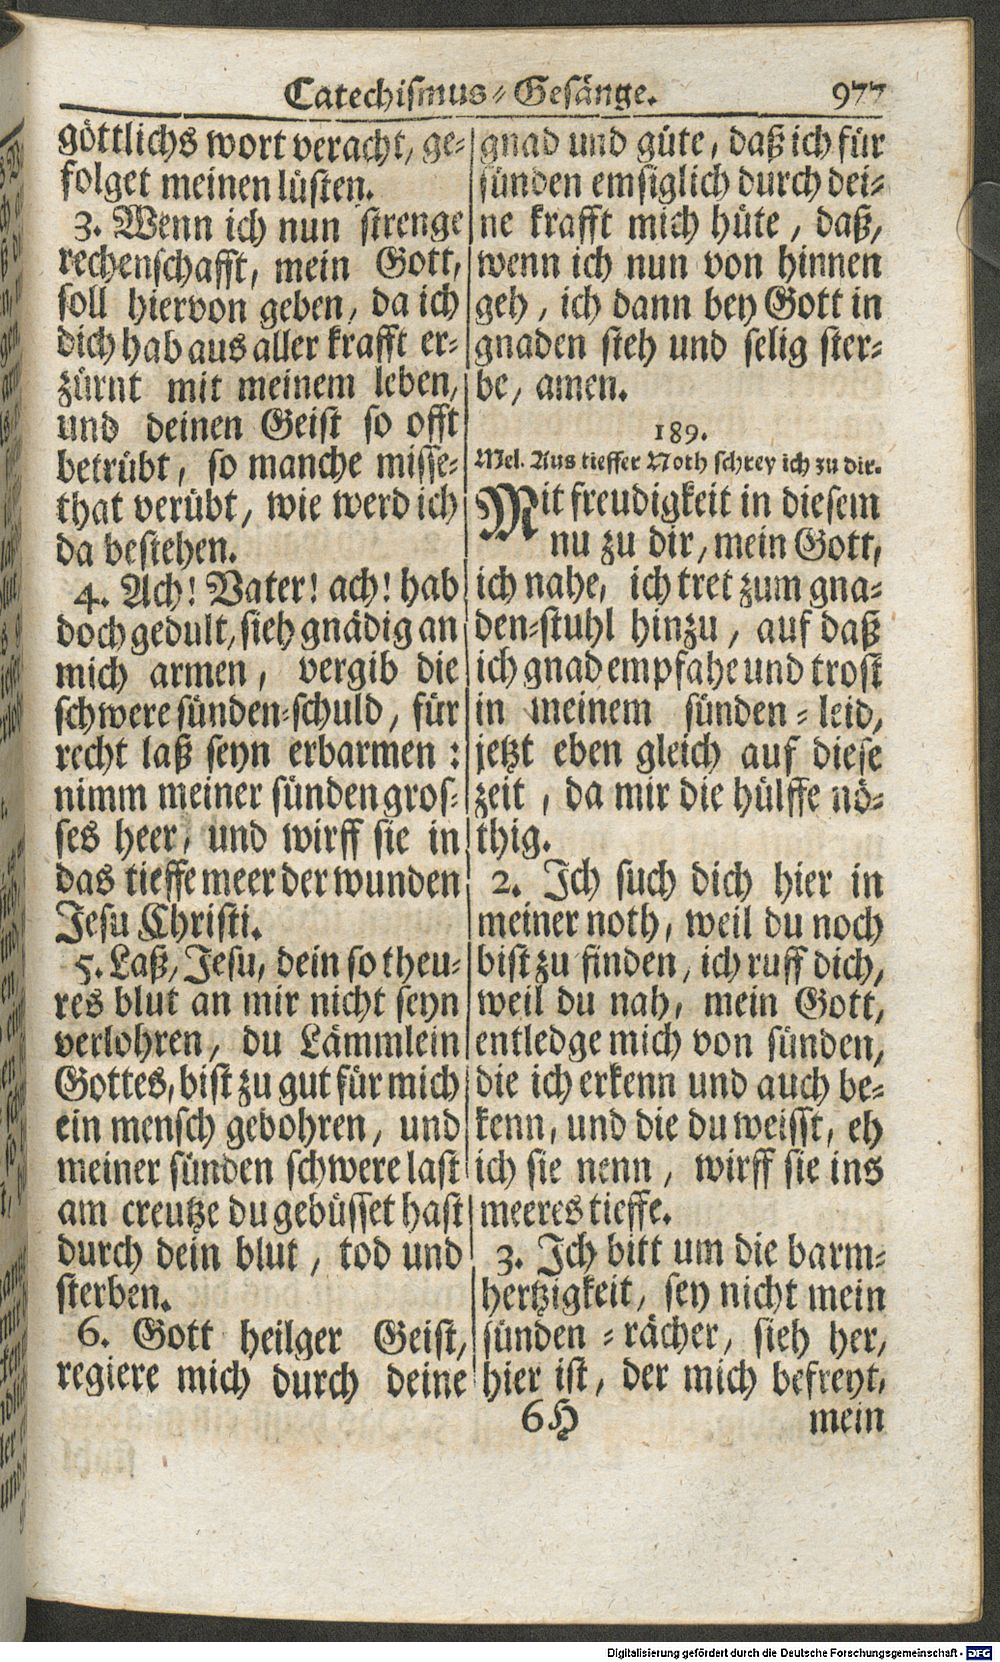 Catechismus-Gesänge. 977
göttlichs wort veracht, ge-
folget meinen lüsten.
3. Wenn ich nun strenge
rechenschafft, mein Gott,
soll hiervon geben, da ich
dich hab aus aller krafft er-
zürnt mit meinem leben,
und deinen Geist so offt
betrübt, so manche misse-
that verübt, wie werd ich
da bestehen.
4. Ach! Vater! ach! hab
doch gedult, sieh gnädig an
mich armen, vergib die
schwere sünden-schuld, für
recht laß seyn erbarmen:
nimm meiner sünden gros-
ses heer, und wirff sie in
das tieffe meer der wunden
Jesu Christi.
5. Laß, Jesu, dein so theu-
res blut an mir nicht seyn
verlohren, du Lämmlein
Gottes, bist zu gut für mich
ein mensch gebohren, und
meiner sünden schwere last
am creutze du gebüsset hast
durch dein blut, tod und
sterben.
6. Gott heilger Geist,
regiere mich durch deine
gnad und güte, daß ich für
sünden emsiglich durch dei-
ne krafft mich hüte, daß,
wenn ich nun von hinnen
geh, ich dann bey Gott in
gnaden steh und selig ster-
be, amen.
189.
Mel. Aus tieffer Noth schrey ich zu dir.
Mit freudigkeit in diesem
nu zu dir, mein Gott,
ich nahe, ich tret zum gna-
den-stuhl hinzu, auf daß
ich gnad empfahe und trost
in meinem sünden-leid,
jetzt eben gleich auf diese
zeit, da mir die hülffe nö-
thig.
2. Ich such dich hier in
meiner noth, weil du noch
bist zu finden, ich ruff dich,
weil du nah, mein Gott,
entledge mich von sünden,
die ich erkenn und auch be-
kenn, und die du weisst, eh
ich sie nenn, wirff sie ins
meeres tieffe.
3. Ich bitt um die barm-
hertzigkeit, sey nicht mein
sünden-rächer, sieh her,
hier ist, der mich befreyt,
6H mein
Digitalisierung gefördert durch die Deutsche Forschungsgemeinschaft - DFG